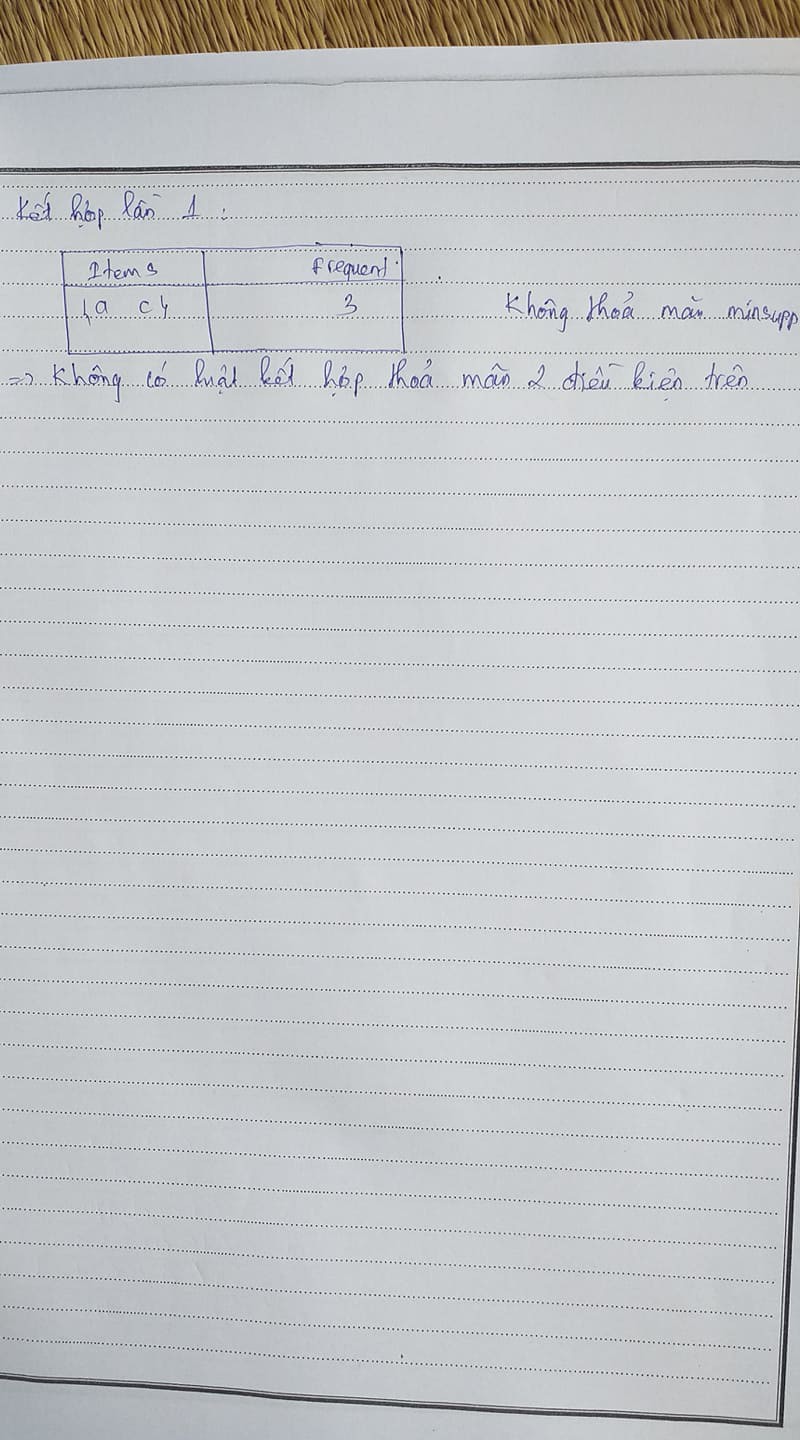 Kết hợp lần 1 :
Items Frequent
{a c} 3
Không thoả mãn minsupp
=> Không có luật kết hợp thoả mãn 2 điều kiện trên